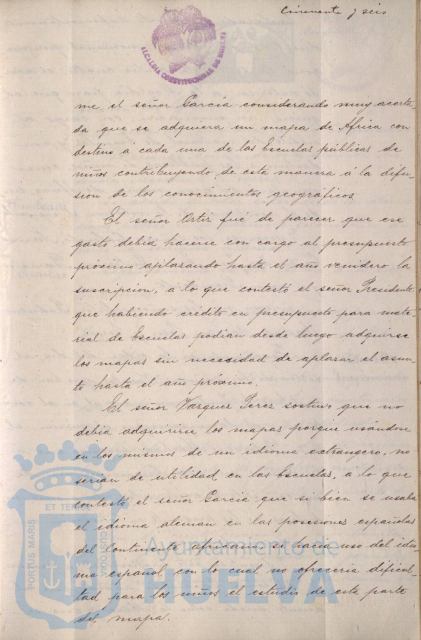 Cincuenta y seis
ALCALDIA CONSTITUCIONAL DE HUELVA
me el señor García considerando muy acerta-
da que se adquiera un mapa de Africa con
destino á cada una de las Escuelas públicas de
niños contribuyendo de esta manera á la difu-
sion de los conocimientos geográficos
El señor Ortiz fué de parecer que ese
gasto debia hacerse con cargo al presupuesto
próximo aplazando hasta el año venidero la
suscripcion, a lo que contestó el señor Presidente
que habiendo crédito en presupuesto para mate-
rial de Escuelas podian desde luego adquirirse
los mapas sin necesidad de aplazar el asun-
to hasta el año próximo.
El señor Vazquez Perez sostuvo que no
debia adquirirse los mapas porque usándose
en los mismos de un idioma extrangero, no
serian de utilidad en las Escuelas, á lo que
contestó el señor García que si bien se usaba
el idioma aleman en las posesiones españolas
del continente africano se hace uso del idio-
ma español con lo cual no ofreceria dificul-
tad para los niños el estudio de esta parte
del mapa.
PORTUS MARIS
ET TERRAE
CUSTODIA
Ayuntamiento de
HUELVA